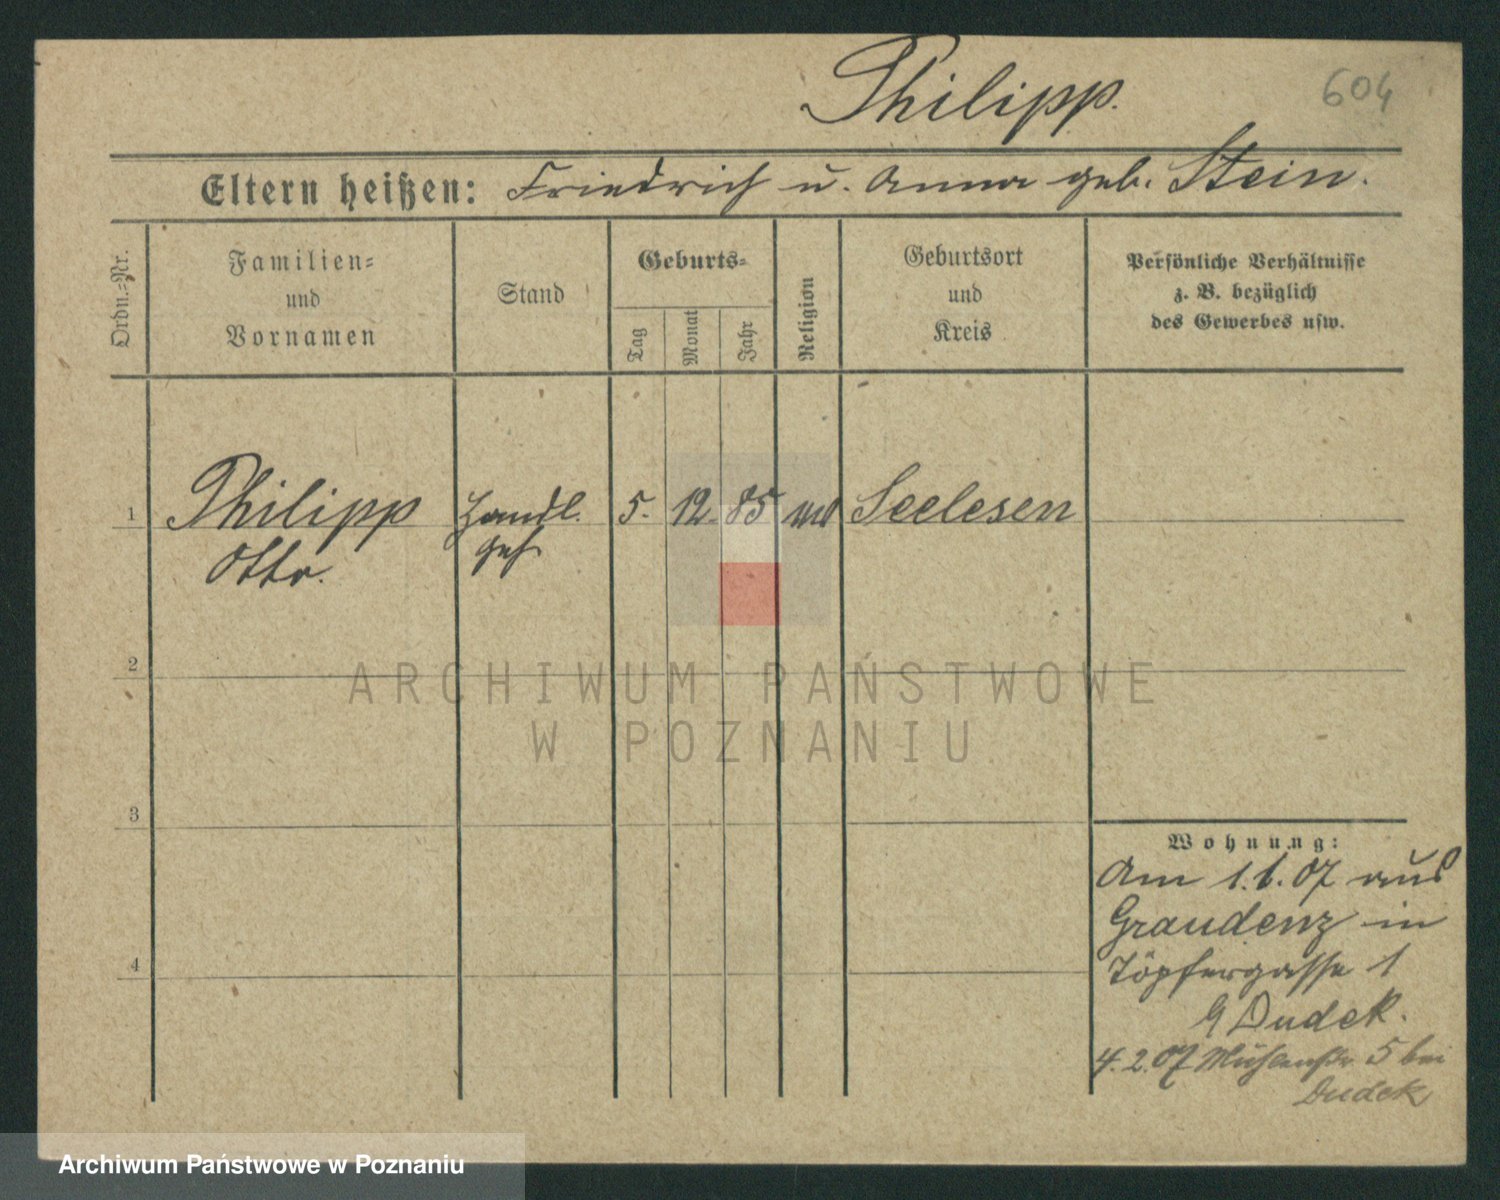 Philipp.
604
Eltern heißen: Friedrich u. Anna geb. Stein.
Ordn.-Nr.
Familien-
und
Vornamen
Stand
Geburts-
Tag
Monat
Jahr
Religion
Geburtsort
und
Kreis
Persönliche Verhältnisse
z. B. bezüglich
des Gewerbes usw.
1 Philipp Handl. 5. 12. 85 Seelesen
Otto. geh.
2
ARCHIWUM PAŃSTWOWE
W POZNANIU
3
Wohnung:
Am 1.1.07 aus
Graudenz in
Töpfergasse 1
4
Dudek.
4.2.07 Mühlenstr. 5 bei
Dudek
Archiwum Państwowe w Poznaniu